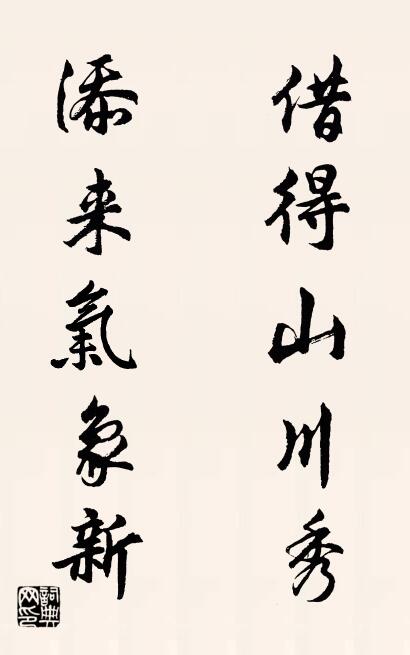 借得山川秀
添来氣象新
詞典网印